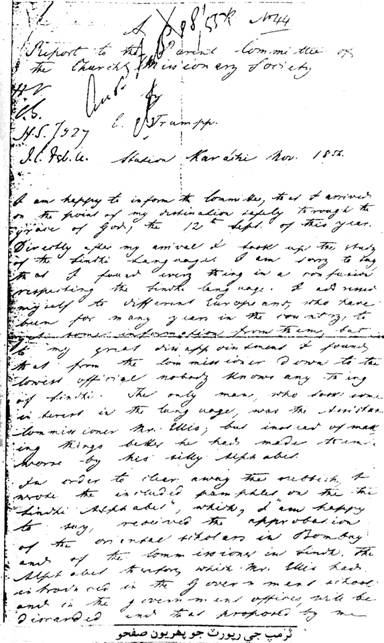 A
No 44
Report to the Parent Committee of
the Church Missionary Society
by
H.V.
C. Trumpp.
Station Karáchi Nov. 1854.
I am happy to inform the Committee, that I arrived
on the point of my destination safely through the
grace of God, the 12th Sept. of this year.
Directly after my arrival I took up the study
of the Sindhi language. I am sorry to say
that I found every thing in a confusion
respecting the Sindhi language. I addressed
myself to different Europeans, who have
been for many years in the country, to
some information from them, but
to my great disappointment I found,
that from the Commissioner down to the
lowest official nobody knows any thing
of Sindhi. The only man, who took some
interest in the language, was the Assistant
Commissioner Mr. Ellis; but instead of mak
ing things better he had made them
worse by his silly Alphabet.
In order to clear away the rubbish, I
wrote the included pamphlet "on the
Sindhi Alphabet" which, I am happy
to say, received the approbation
of the oriental scholars in Bombay
and of the Commissioner in Sindh. The
Alphabet therefore which Mr. Ellis had
introduced in the Government school
and in the government offices, will be
discarded and that proposed by me
ٽرمپ جي رپورٽ جو پهريون صفحو